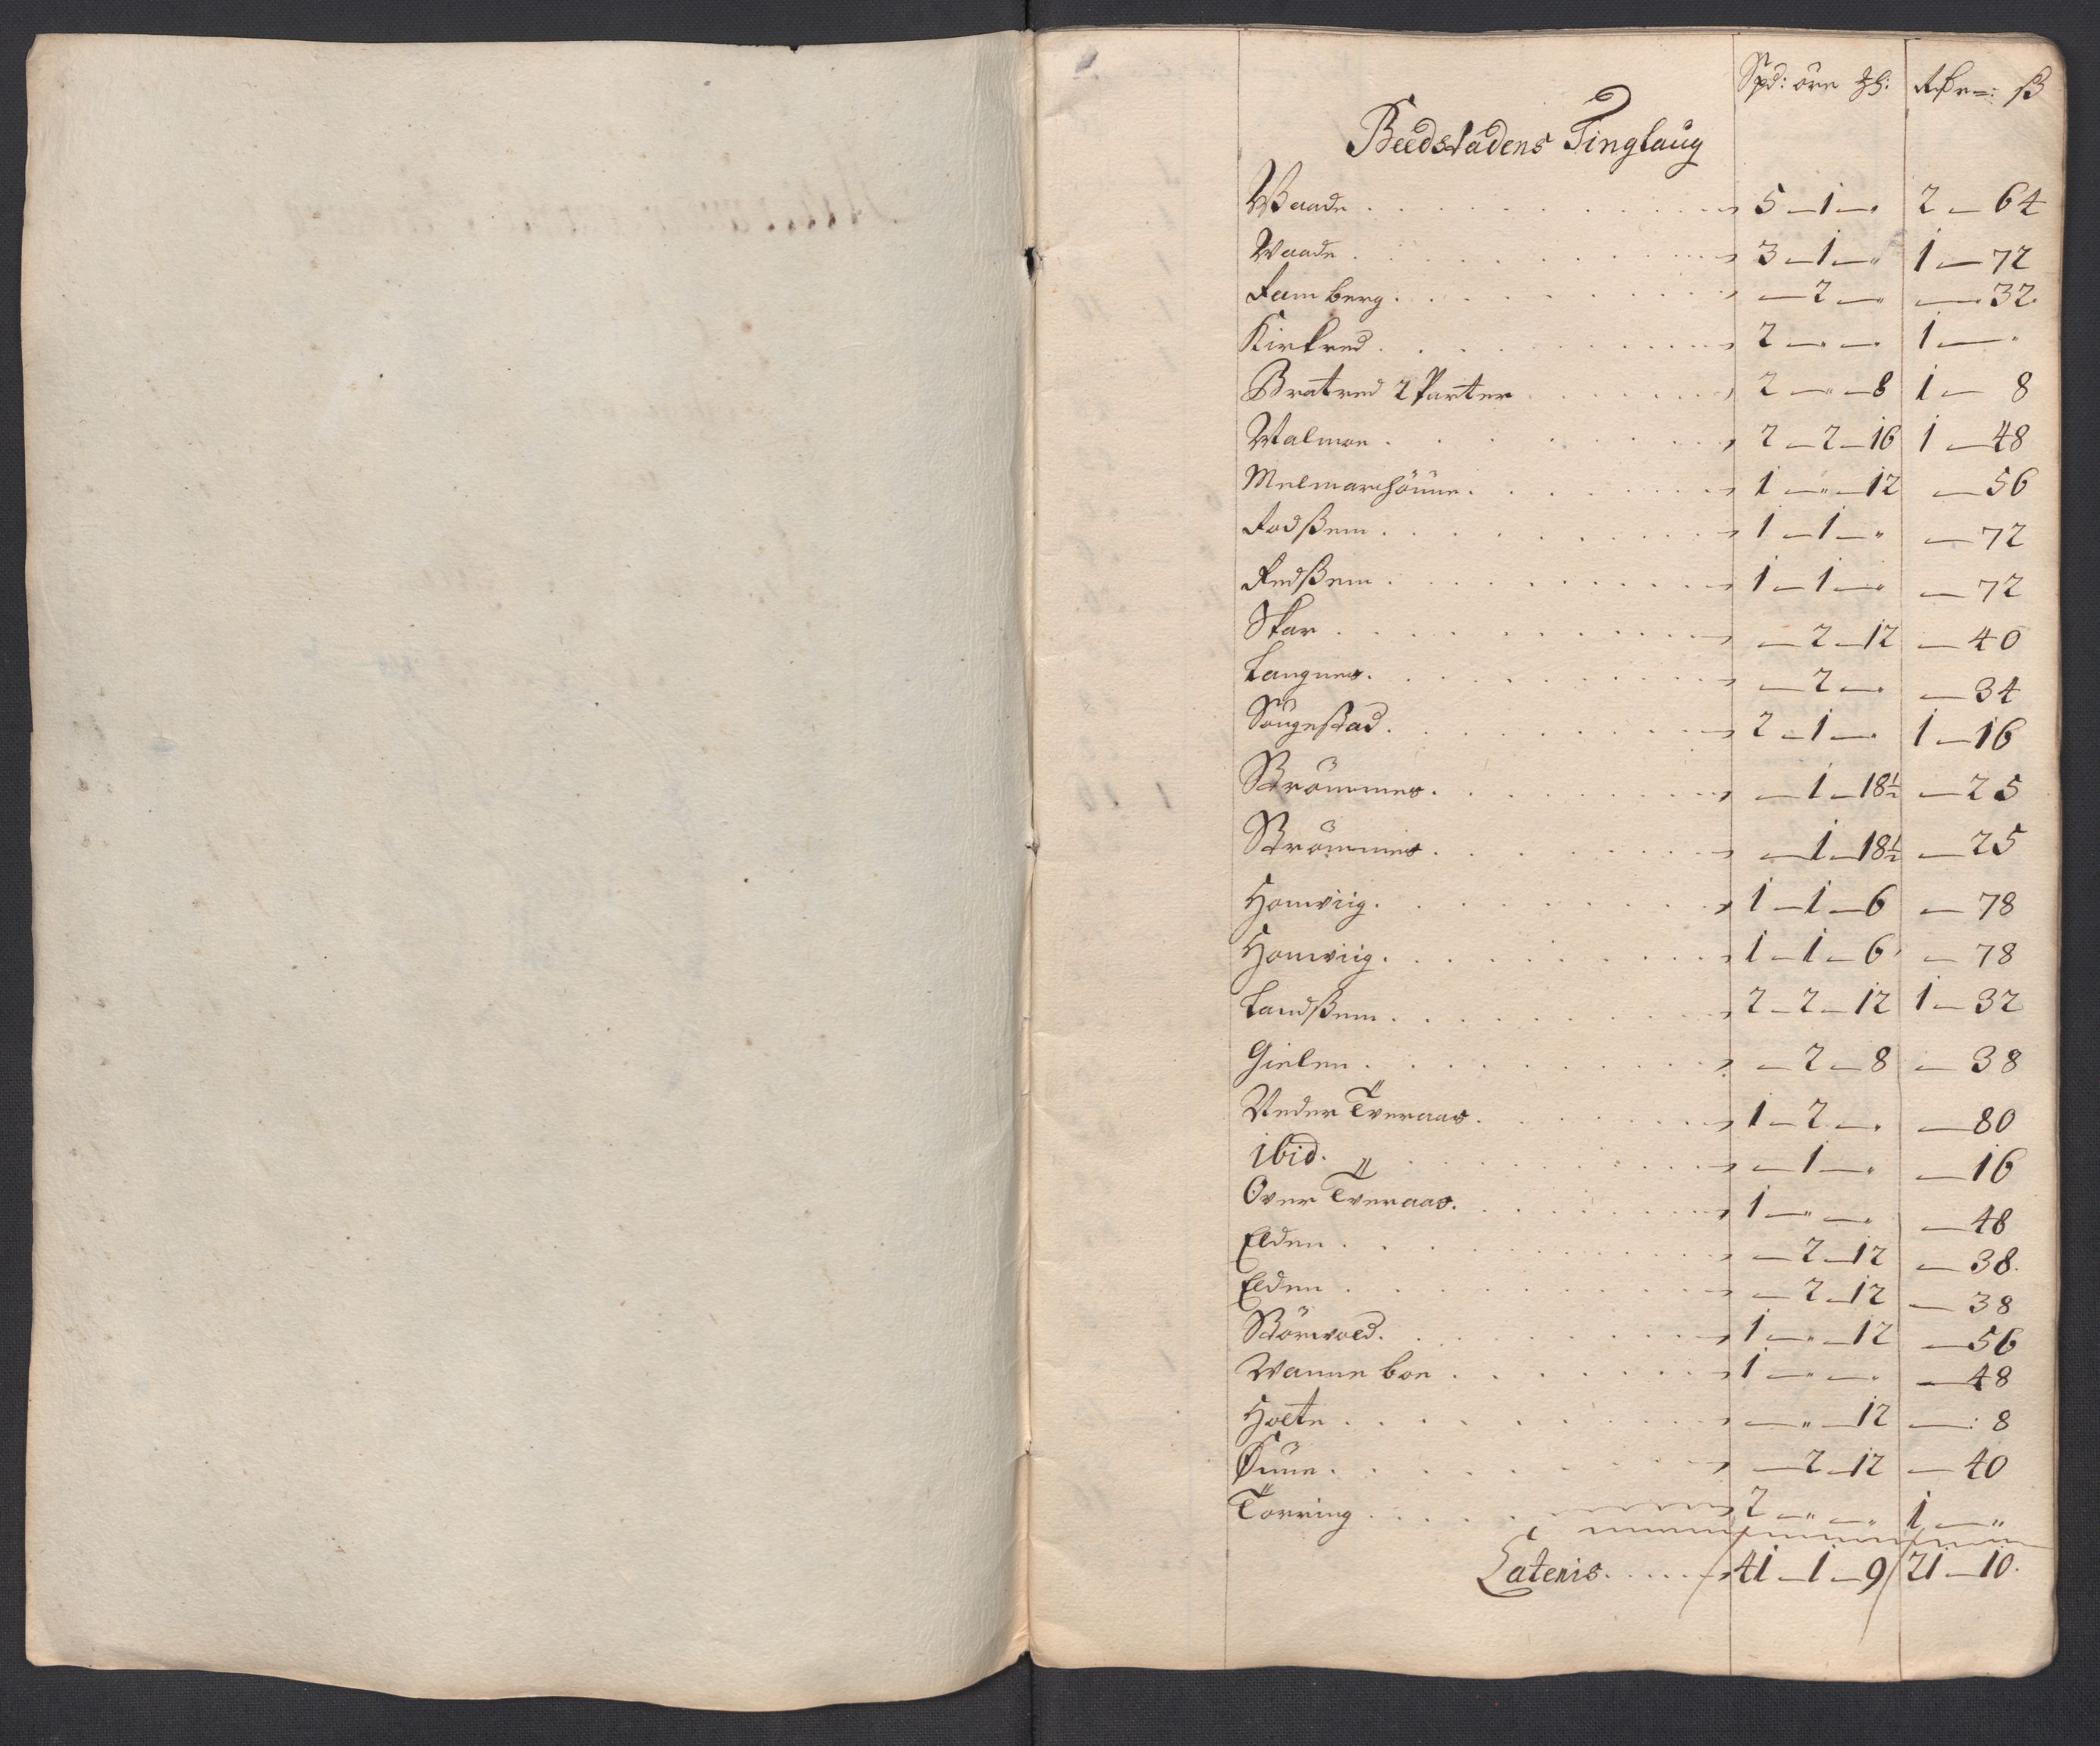 Spd: öre ℔: Rdr: ß
Beedstadens Tinglaug
Waade . . . 5 — 1 — „ 2 — 64
Waade . . . 3 — 1 — „ 1 — 72
Famberg . . . — 2 — „ — 32
Kirkred . . . 2 — „ — „ 1 — „
Bratred 2 Parter . . . 2 — „ — 8 1 — 8
Walmoe . . . 2 — 2 — 16 1 — 48
Melmarchönne . . . 1 — „ — 12 — 56
Fodßem . . . 1 — 1 — „ — 72
Fedßem . . . 1 — 1 — „ — 72
Skar . . . — 2 — 12 — 40
Langnes . . . — 2 — „ — 34
Sougestad . . . 2 — 1 — „ 1 — 16
Strömmes . . . — 1 — 18½ — 25
Strömmes . . . — 1 — 18½ — 25
Homviig . . . 1 — 1 — 6 — 78
Homviig . . . 1 — 1 — 6 — 78
Landßem . . . 2 — 2 — 12 1 — 32
Gielen . . . — 2 — 8 — 38
Neder Tveraas . . . 1 — 2 — „ — 80
ibid. . . . — 1 — „ — 16
Over Tveraas . . . 1 — „ — „ — 48
Elden . . . — 2 — 12 — 38
Elden . . . — 2 — 12 — 38
Störvold . . . 1 — „ — 12 — 56
Wanneboe . . . 1 — „ — „ — 48
Holte . . . — „ — 12 — 8
Öune . . . — 2 — 12 — 40
Torring . . . 2 — „ — „ 1 — „
Lateris . . . 41 — 1 — 9 21 — 10